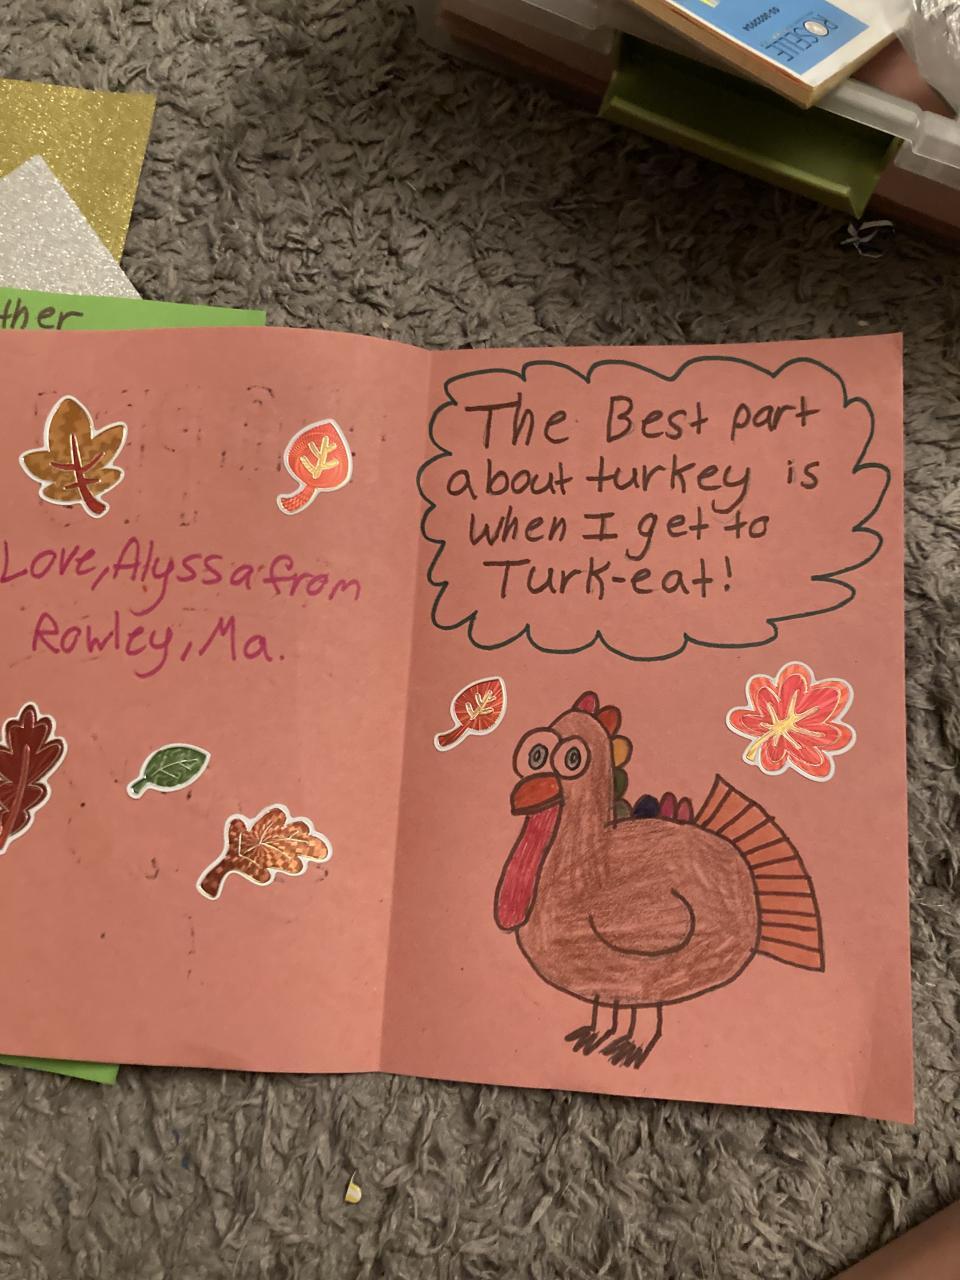 ROSELLE
00-0003004
ther
Love, Alyssa from
Rowley, Ma.
The Best part
about turkey is
when I get to
Turk-eat!